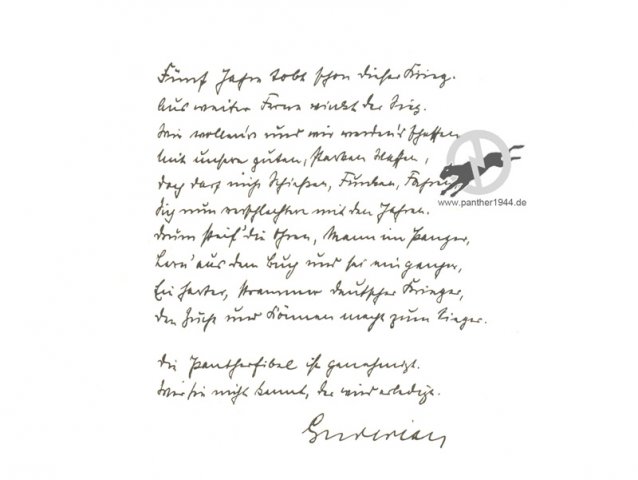 Fünf Jahre tobt schon dieser Krieg.
Aus weiter Ferne winkt der Sieg.
Wir wollen's und wir werden's schaffen
mit unsern guten, starken Waffen,
doch darf nicht Schießen, Funken, Fahren
sich nun verschlechtern mit den Jahren.
Drum steif' die Ohren, Mann im Panzer,
Lern' aus dem Buch und sei ein ganzer,
Ein harter, strammer deutscher Krieger,
den Zucht und Können macht zum Sieger.
Die Pantherfibel ist genehmigt.
Wer sie nicht kennt, der wird erledigt.
Guderian
www.panther1944.de